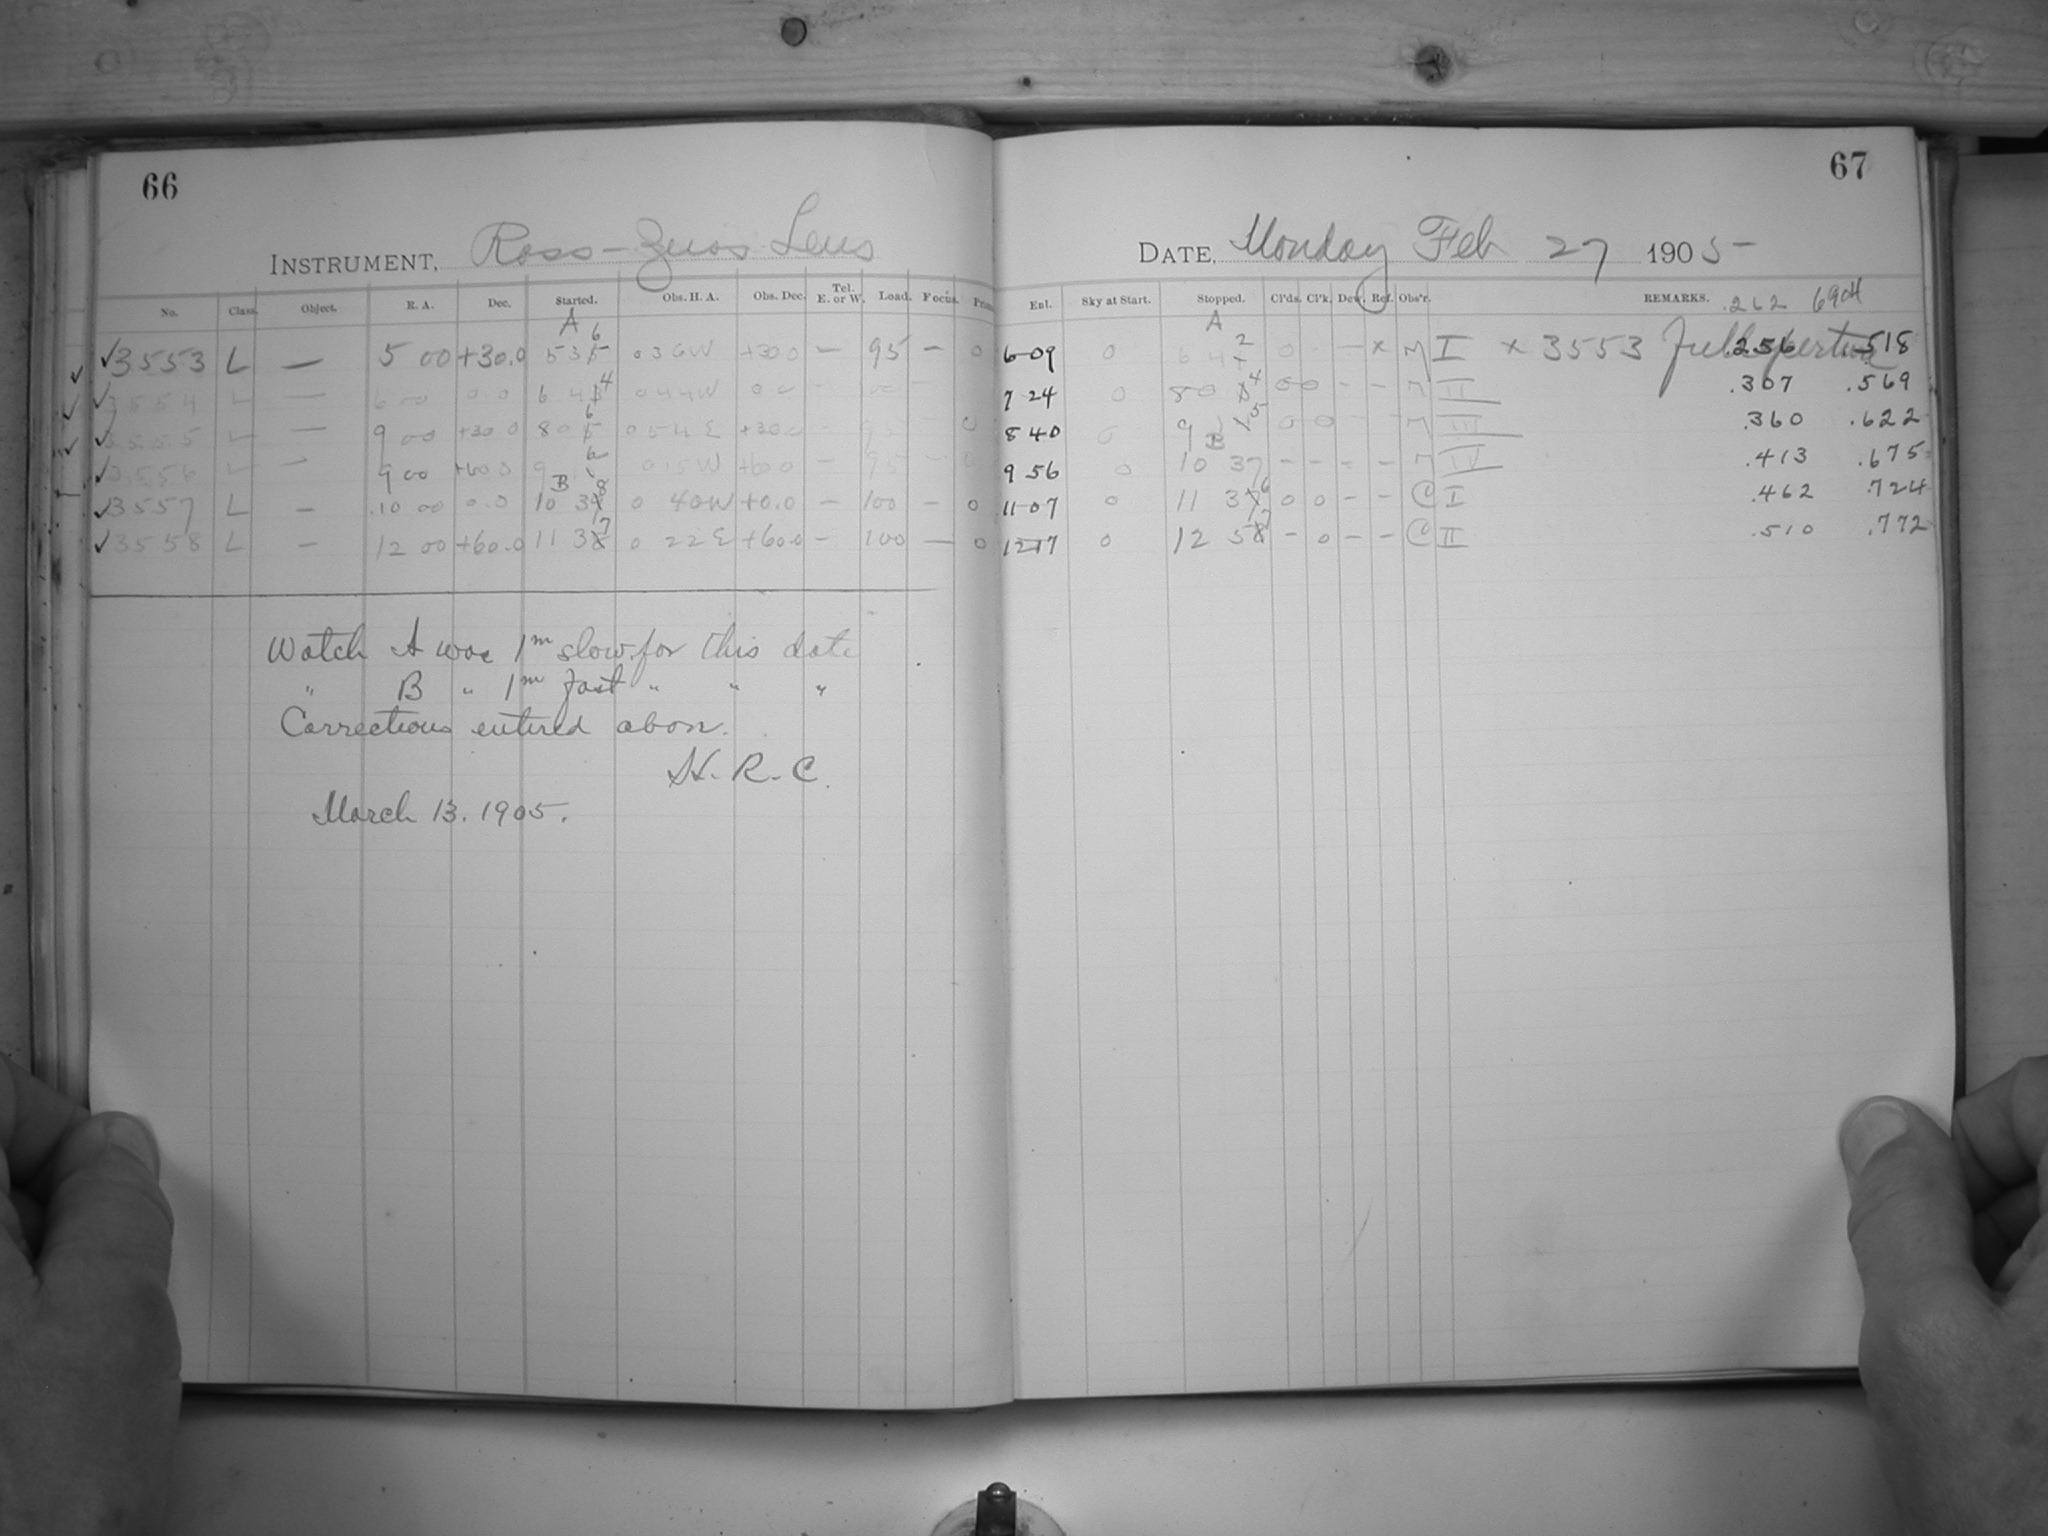 66
67
INSTRUMENT, Ross-Zeiss Lens
DATE, Monday Feb 27 1905
No. Class. Object. R. A. Dec. Started. Obs. H. A. Obs. Dec. Tel. E. or W. Load. Focus. Prism
Exl. Sky at Start. Stopped. Cl'ds. Cl'k. Dew. Ref. Obs'r. REMARKS. .262 6904
A 6
A 2
✓3553 L — 5 00 +30.0 5 35 0 36W +30.0 — 95 — 0 6 09 0 6 4 0 — x M I x 3553 Full aperture .256 .518
✓3554 L — 6 00 0.0 6 4 4 0 44W 0.0 — 100 — 7 24 0 8 0 4 0 0 — — M II .307 .569
✓3555 L — 9 00 +30.0 8 05 6 0 54E +30.0 95 0 8 40 0 9 5 0 0 M III .360 .622
✓3556 L — 9 00 +60.0 9 0 15W +60.0 — 95 — 0 9 56 0 B 10 37 — — — — M IV .413 .675
✓3557 L — 10 00 0.0 B 10 3 8 0 40W +0.0 — 100 — 0 11 07 0 11 37 6 0 0 — — C I .462 .724
✓3558 L — 12 00 +60.0 11 38 7 0 22E +60.0 — 100 — 0 12 17 0 12 58 7 — 0 — — C II .510 .772
Watch A was 1m slow for this date
" B " 1m fast " " "
Corrections entered above.
H. R. C.
March 13. 1905.